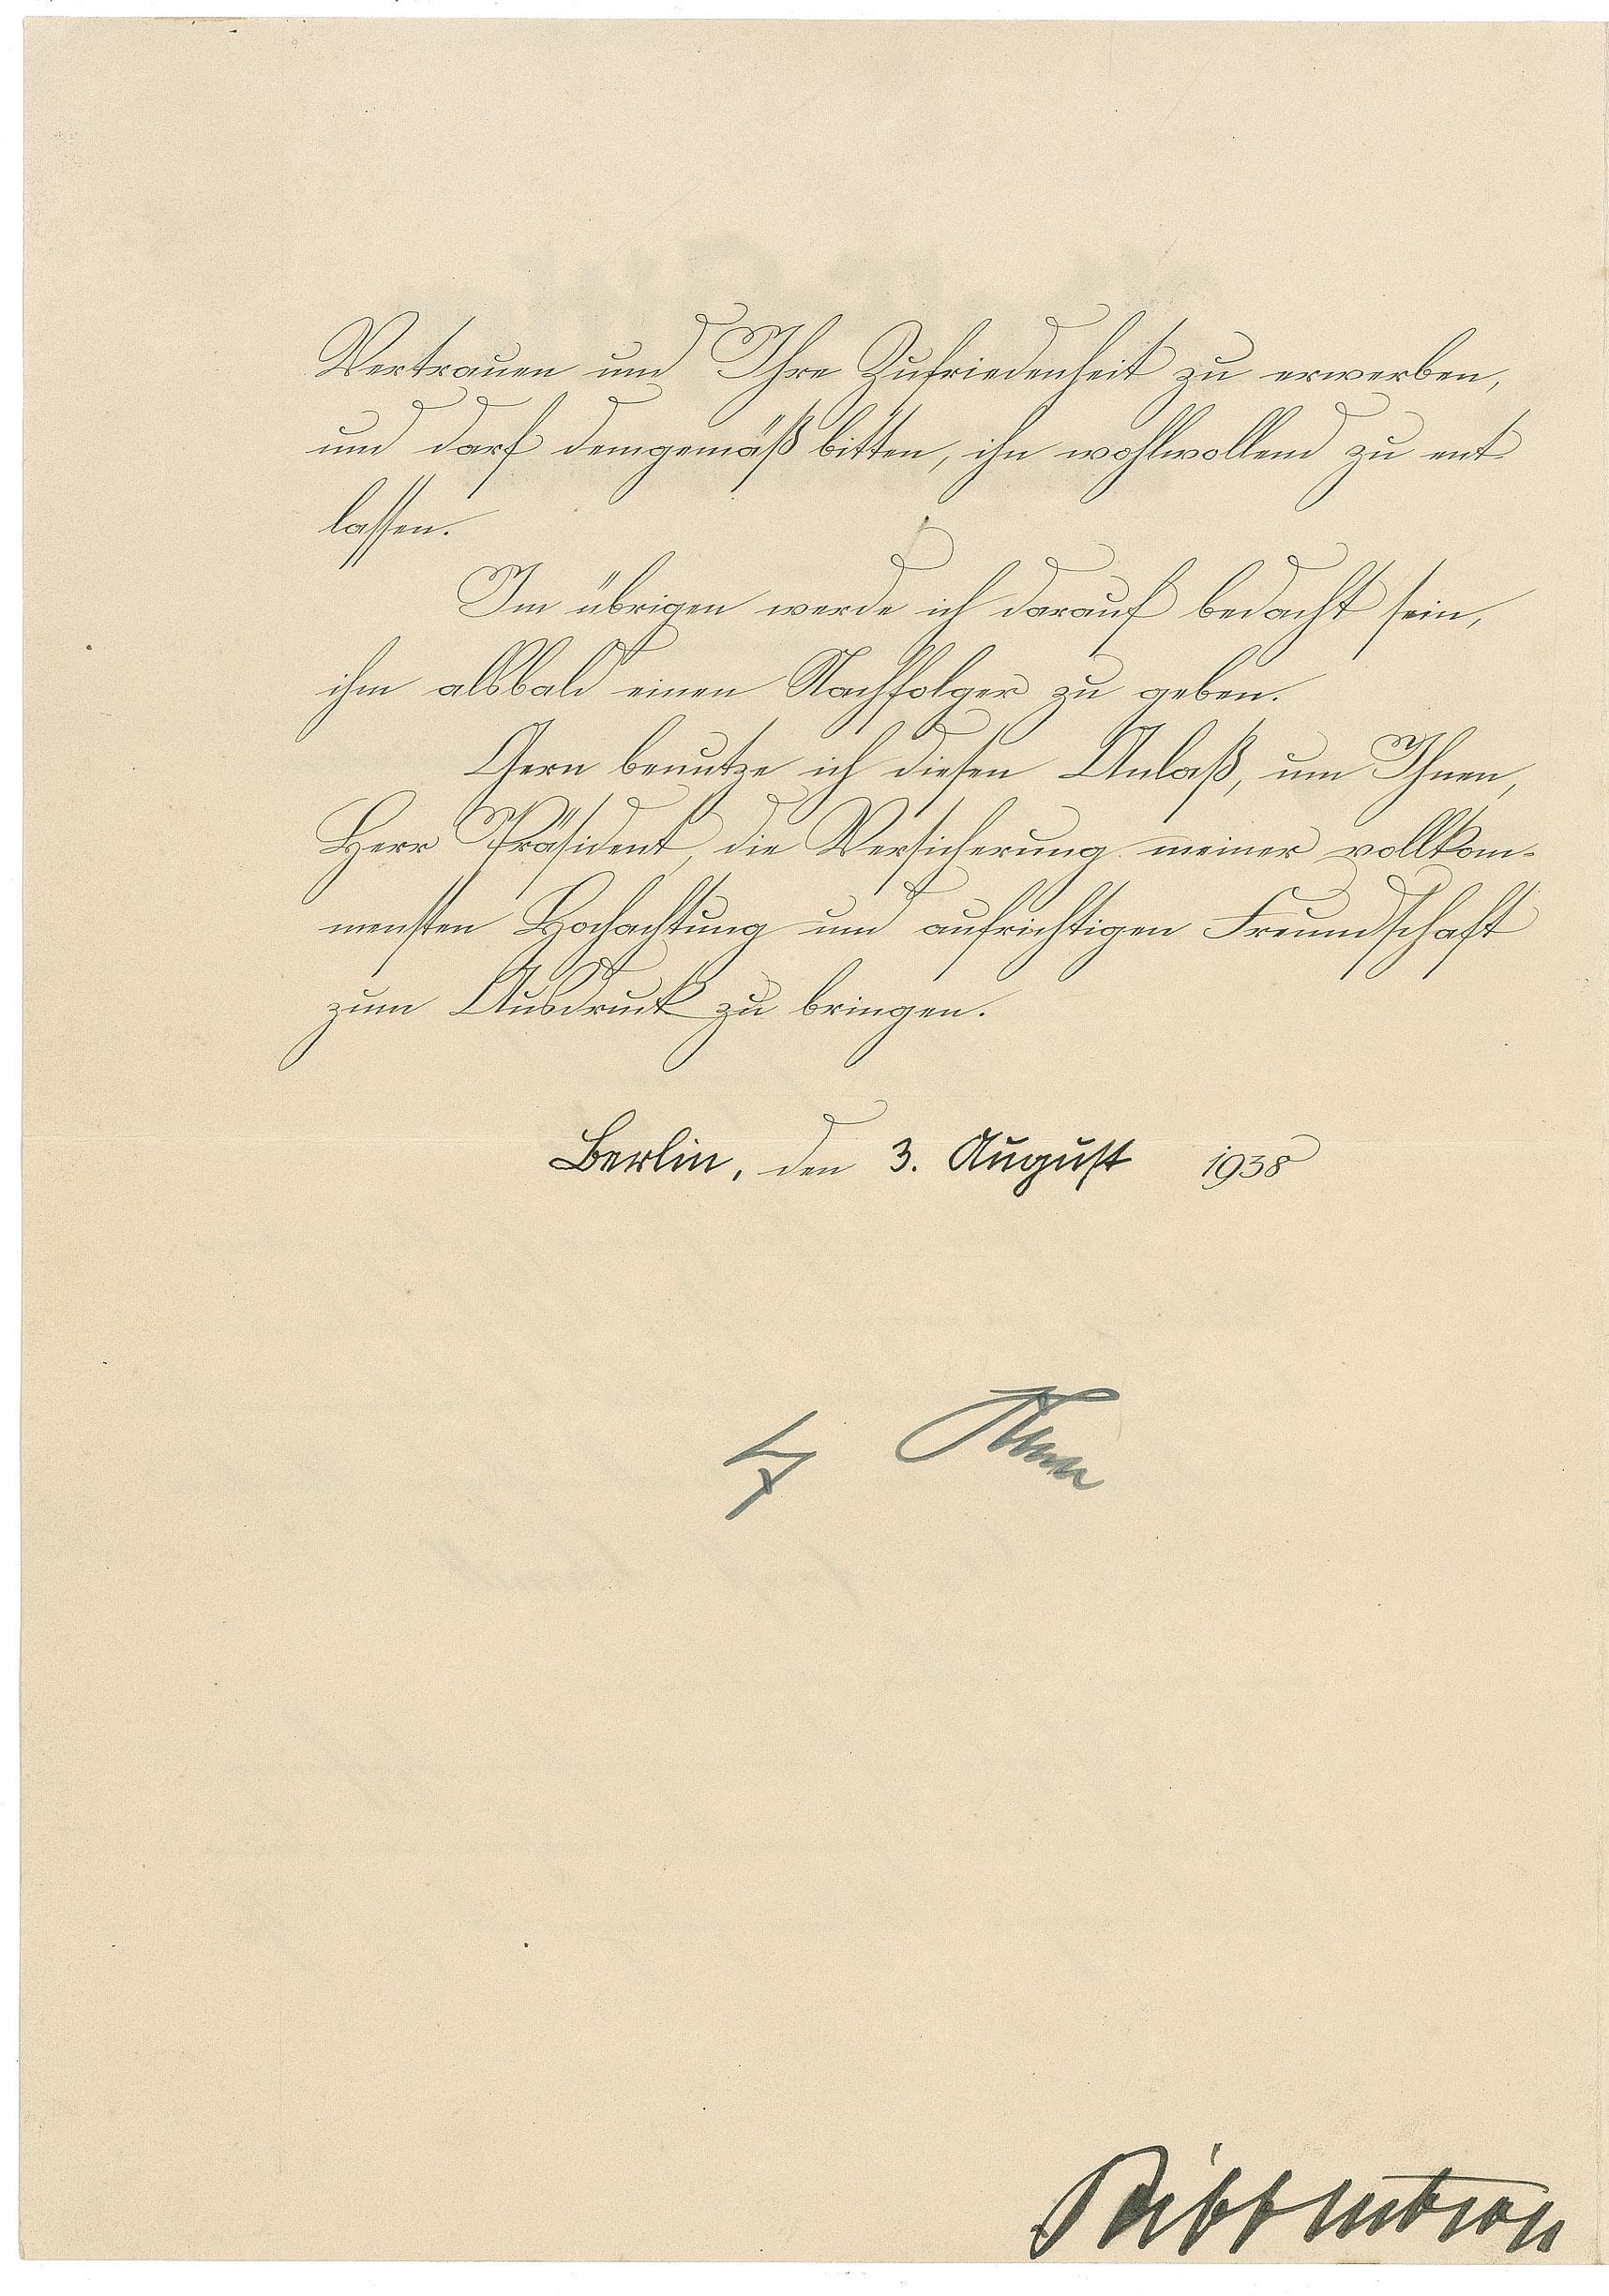 Vertrauen und Ihre Zufriedenheit zu erwerben,
und darf demgemäß bitten, ihn wohlwollend zu ent
lassen.
Im übrigen werde ich darauf bedacht sein,
ihm alsbald einen Nachfolger zu geben.
Gern benutze ich diesen Anlaß, um Ihnen,
Herr Präsident, die Versicherung meiner vollkom-
mensten Hochachtung und aufrichtigen Freundschaft
zum Ausdruck zu bringen.
Berlin, den 3. August 1938
Ribbentrop